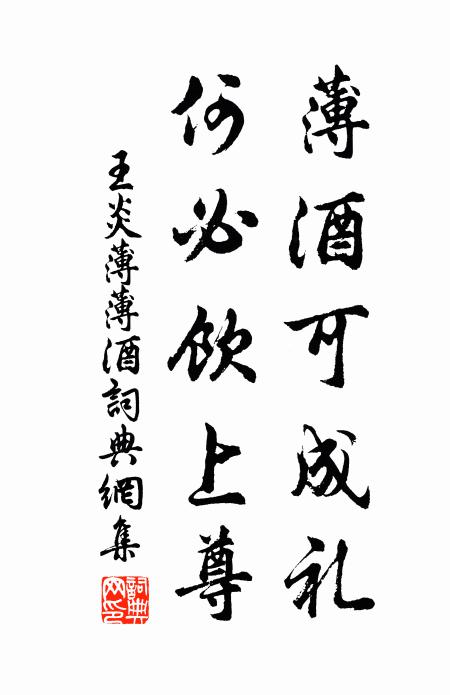 薄酒可成礼
何必飲上尊
王炎薄薄酒詞典網集
詞典网印